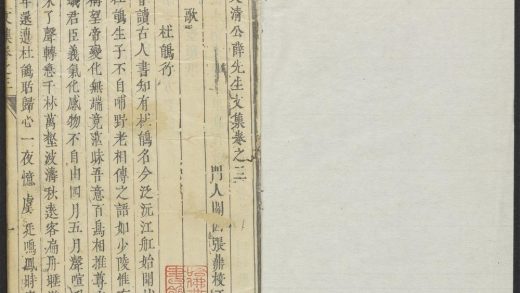 文清公薛先生文集卷之三
門人關西張鼎校
歌
杜鵑行
讀古人書知有杜鵑名今泛沅江舡始聞
鵑生子不自哺野老相傳之語如少陵惟有
稱望帝變化無端竟茫昧吾意百鳥相推尊
君臣義氣化感物不自由四月五月聲喧
未了聲轉急千林萬壑波濤秋遠客扁舟睡
年還遶杜鵑聒歸心一夜憶虞廷鳴鳳時
文集卷之三
一